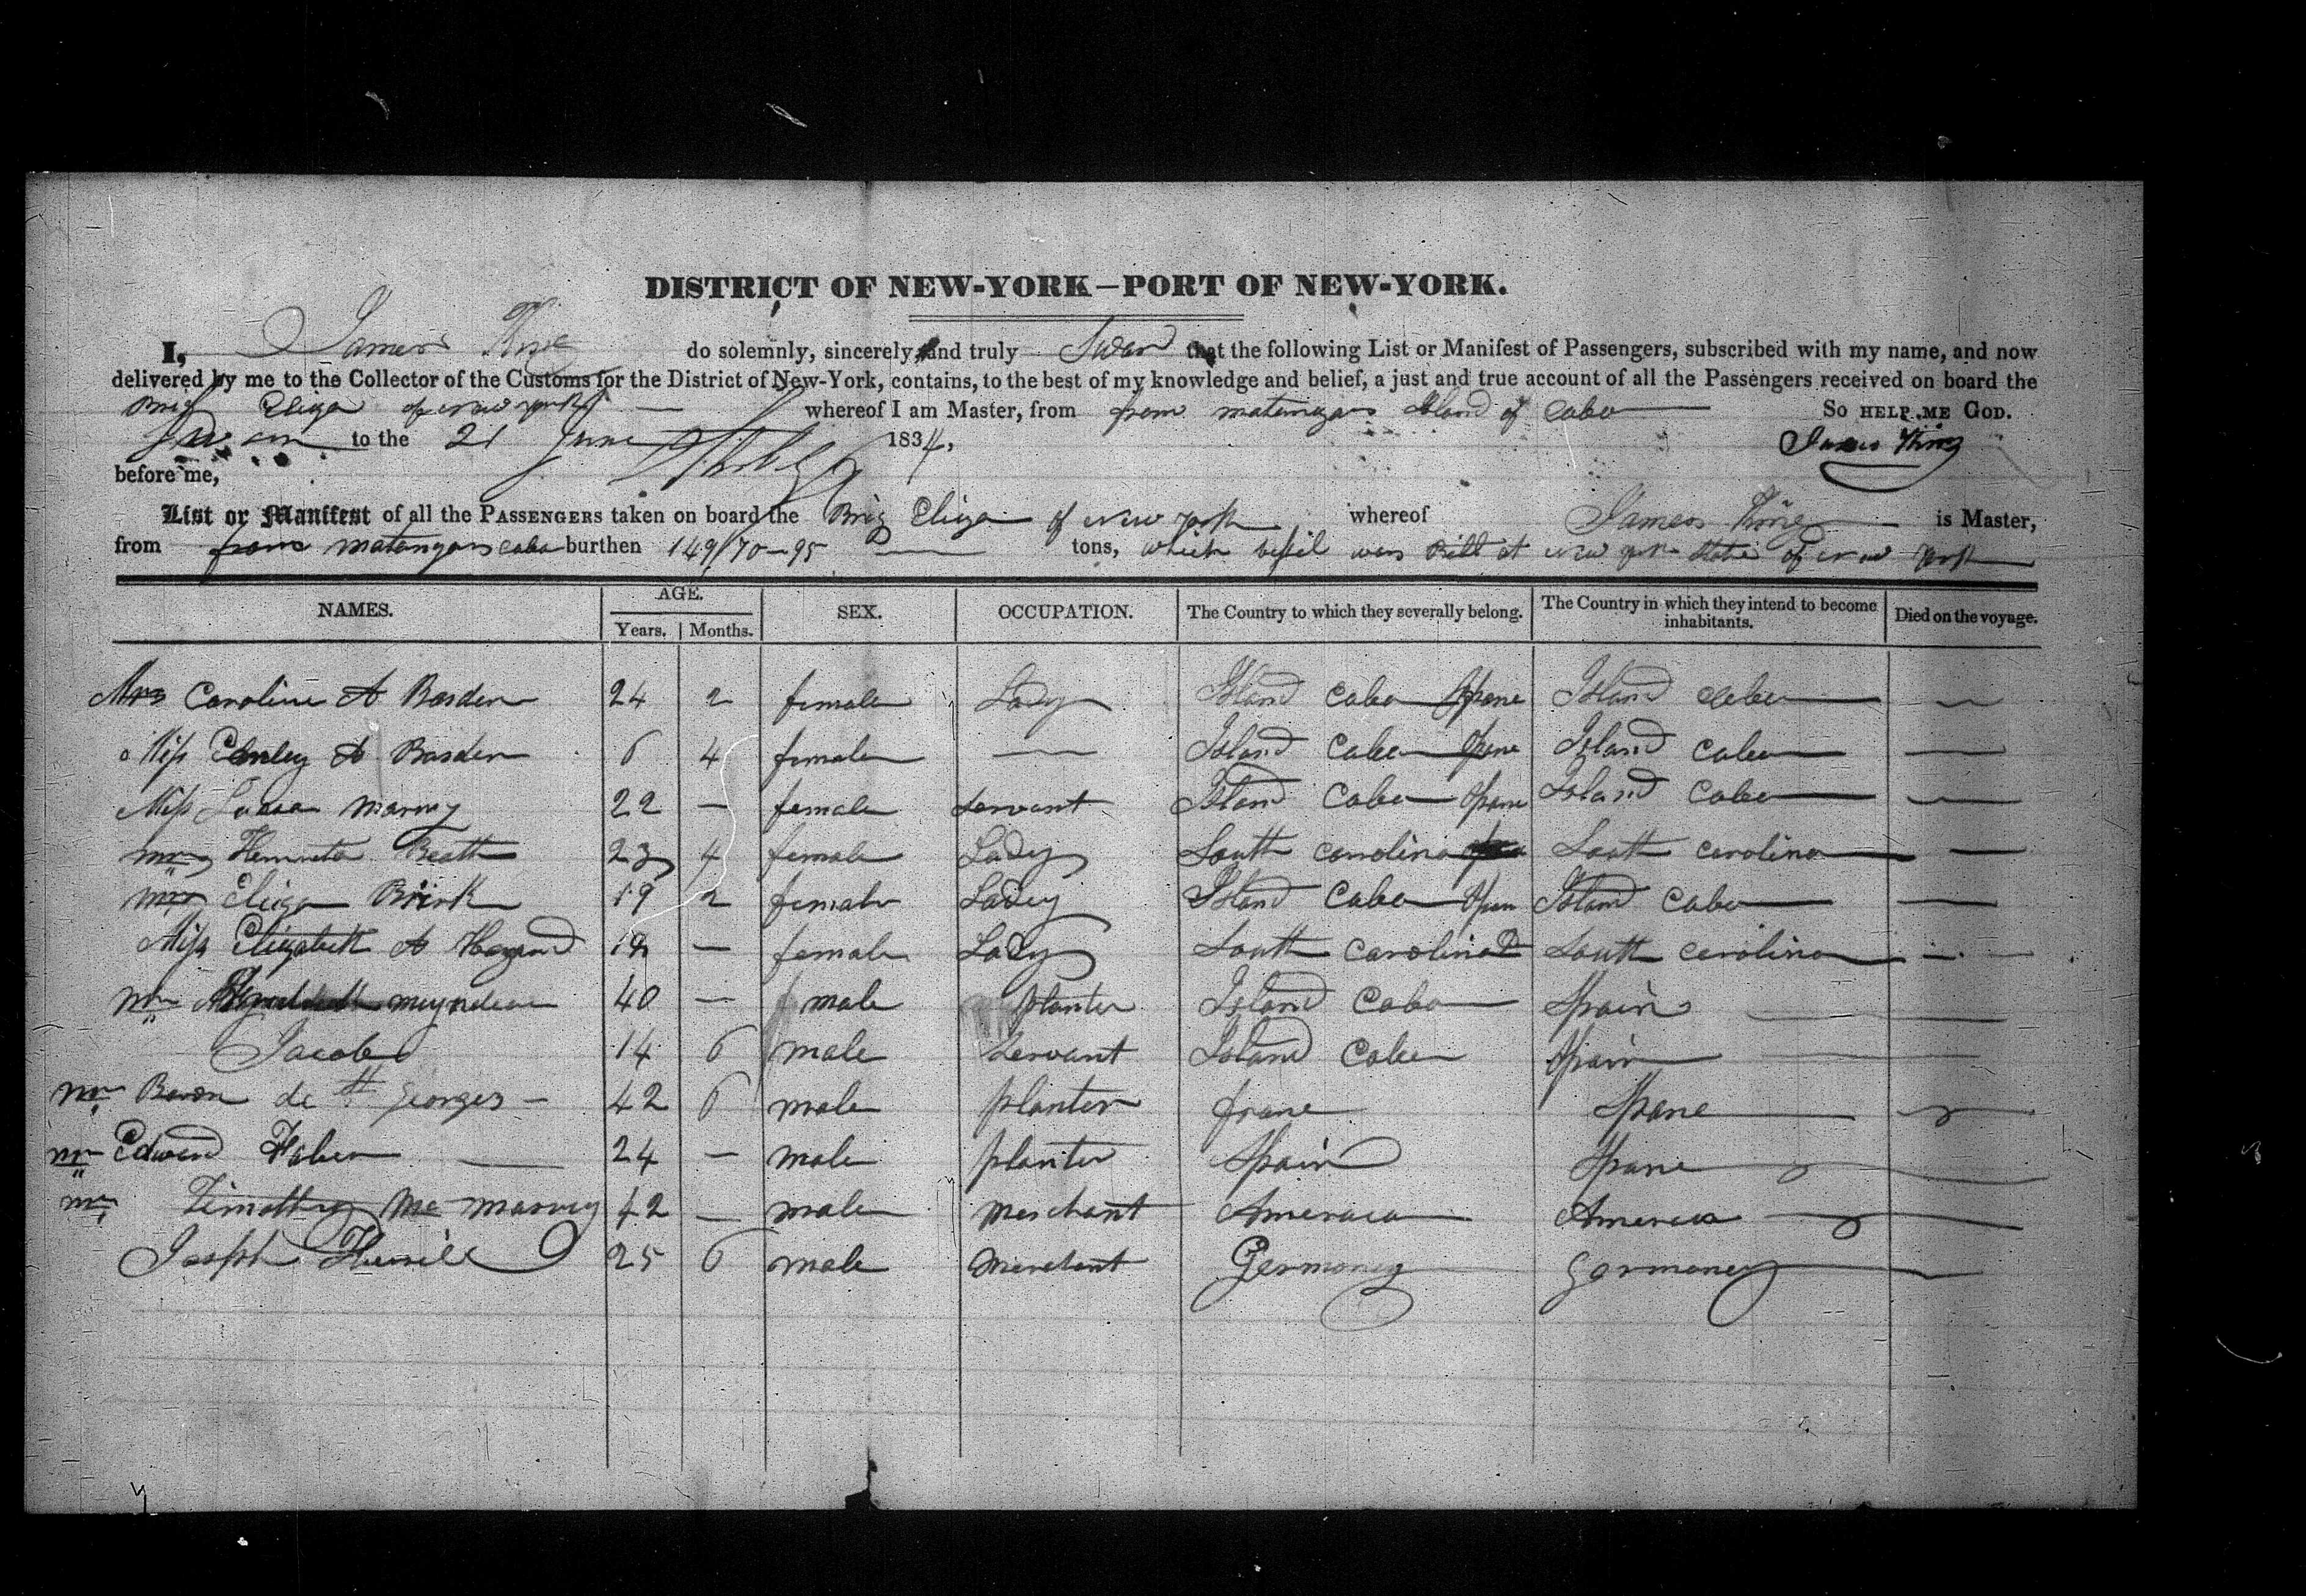 DISTRICT OF NEW-YORK—PORT OF NEW-YORK.
I, James King do solemnly, sincerely, and truly Swear that the following List or Manifest of Passengers, subscribed with my name, and now
delivered by me to the Collector of the Customs for the District of New-York, contains, to the best of my knowledge and belief, a just and true account of all the Passengers received on board the
Brig Eliza of new york whereof I am Master, from from matanzas Island of Cuba SO HELP ME GOD.
to the 21 June 1834, James King
before me,
List or Manifest of all the PASSENGERS taken on board the Brig Eliza of new york whereof James King is Master,
from from matanzas cuba burthen 149/70-95 tons, which vessil was Bilt at new york state of new york
NAMES. AGE. SEX. OCCUPATION. The Country to which they severally belong. The Country in which they intend to become inhabitants. Died on the voyage.
Years. Months.
Mrs Caroline A Barden 24 2 female Lady Island Cuba Spane Island Cuba
Miss A Barden 6 4 female — Island Cuba Spane Island Cuba
Miss 22 — female servant Island Cuba Spane Island Cuba
23 4 female Lady South carolina South carolina
Eliza Brink 19 2 female Lady Island Cuba Island Cuba
Miss Elizabeth A — female Lady South carolina South carolina
mr 40 — male planter Island Cuba Spain
Jacob 14 6 male servant Island Cuba Spain
mr Baron de St Georges — 42 6 male planter france Spane
mr Edward Faber 24 — male planter Spain Spane
mr Timothy 42 — male merchant America America
Joseph 25 6 male merchant Germoney Germoney